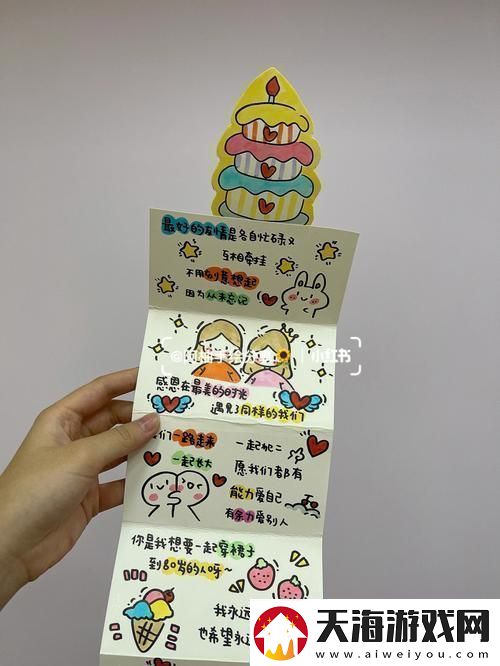 最好的友情是各自忙碌又
互相牵挂
不用刻意想起
因为从未忘记
小红书
感恩在最美的时光
遇见了同样的我们
我们一路走来
一起长大
一起犯二
愿我们都有
能力爱自己
有余力爱别人
你是我想要一起穿裙子
到80岁的人呀~
我永远
也希望永远
天海游戏网
www.aiweiyou.com